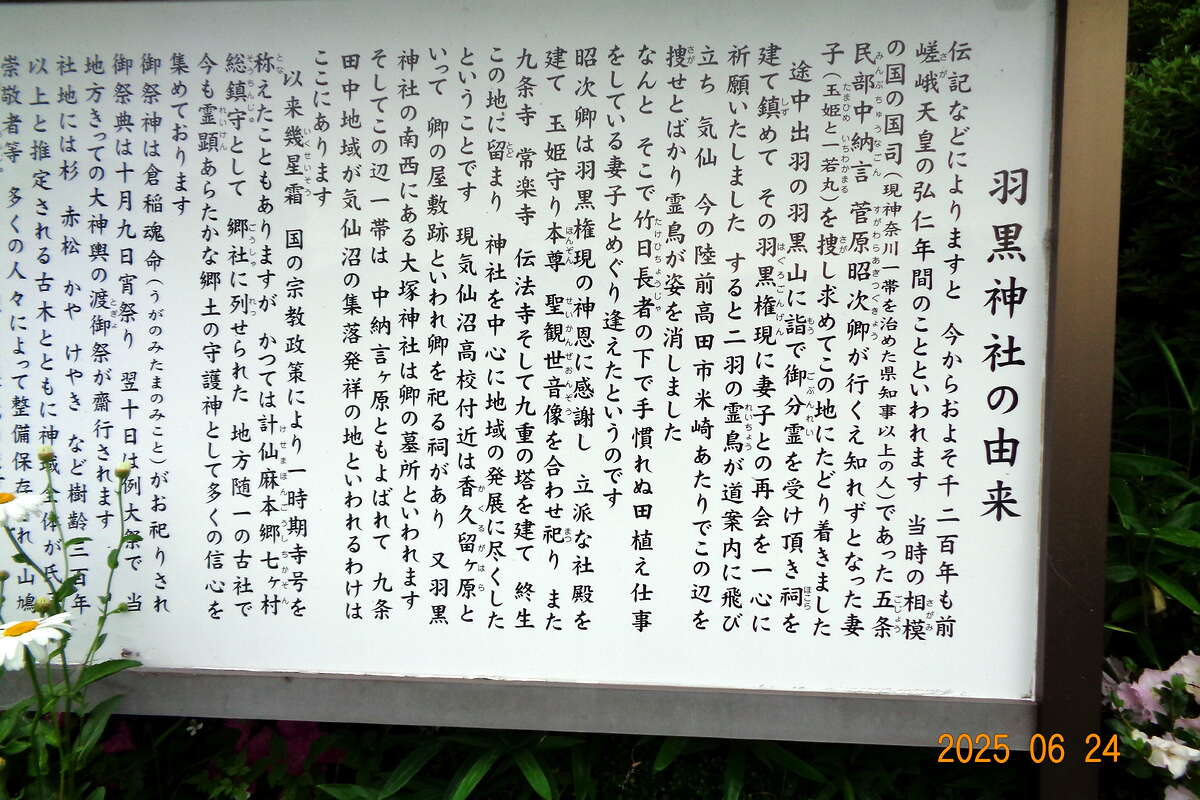 羽黒神社の由来
伝記などによりますと 今からおよそ千二百年も前
嵯峨天皇の弘仁年間のことといわれます 当時の相模
の国の国司(現神奈川一帯を治めた県知事以上の人)であった五条
民部中納言 菅原昭次卿が行くえ知れずとなった妻
子(玉姫と一若丸)を捜し求めてこの地にたどり着きました
途中出羽の羽黒山に詣で御分霊を受け頂き祠を
建て鎮めて その羽黒権現に妻子との再会を一心に
祈願いたしました すると二羽の霊鳥が道案内に飛び
立ち 気仙 今の陸前高田市米崎あたりでこの辺を
捜せとばかり霊鳥が姿を消しました
なんと そこで竹日長者の下で手慣れぬ田植え仕事
をしている妻子とめぐり逢えたというのです
昭次卿は羽黒権現の神恩に感謝し 立派な社殿を
建て 玉姫守り本尊 聖観世音像を合わせ祀り また
九条寺 常楽寺 伝法寺そして九重の塔を建て 終生
この地に留まり 神社を中心に地域の発展に尽くした
ということです 現気仙沼高校付近は香久留ヶ原と
いって 卿の屋敷跡といわれ卿を祀る祠があり 又羽黒
神社の南西にある大塚神社は卿の墓所といわれます
そしてこの辺一帯は 中納言ヶ原ともよばれて 九条
田中地域が気仙沼の集落発祥の地といわれるわけは
ここにあります
以来幾星霜 国の宗教政策により一時期寺号を
称えたこともありますが かつては計仙麻本郷七ヶ村
総鎮守として 郷社に列せられた 地方随一の古社で
今も霊顕あらたかな郷土の守護神として多くの信心を
集めております
御祭神は倉稲魂命(うがのみたまのみこと)がお祀りされ
御祭典は十月九日宵祭り 翌十日は例大祭で 当
地方きっての大神輿の渡御祭が齋行されます
社地には杉 赤松 かや けやき など樹齢三百年
以上と推定される古木とともに神域全体が氏
崇敬者等 多くの人々によって整備保存 れ 山鳩
2025 06 24